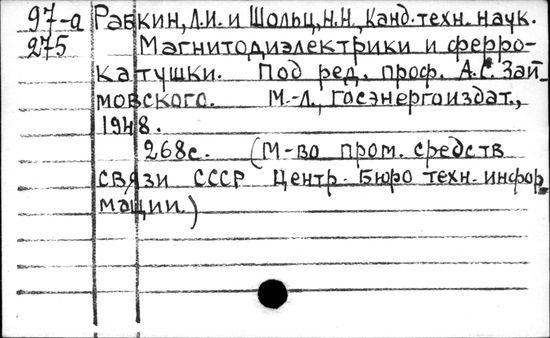 97-а Рабкин, Л.И. и Шольц, Н.Н., Канд. техн. наук.
275 Магнитодиэлектрики и ферро-
катушки. Под ред. проф. А.С. Зай-
мовского. М.-Л., Госэнергоиздат.,
1948.
268с. (М-во пром. средств
связи СССР Центр. Бюро техн. инфор
мации.)